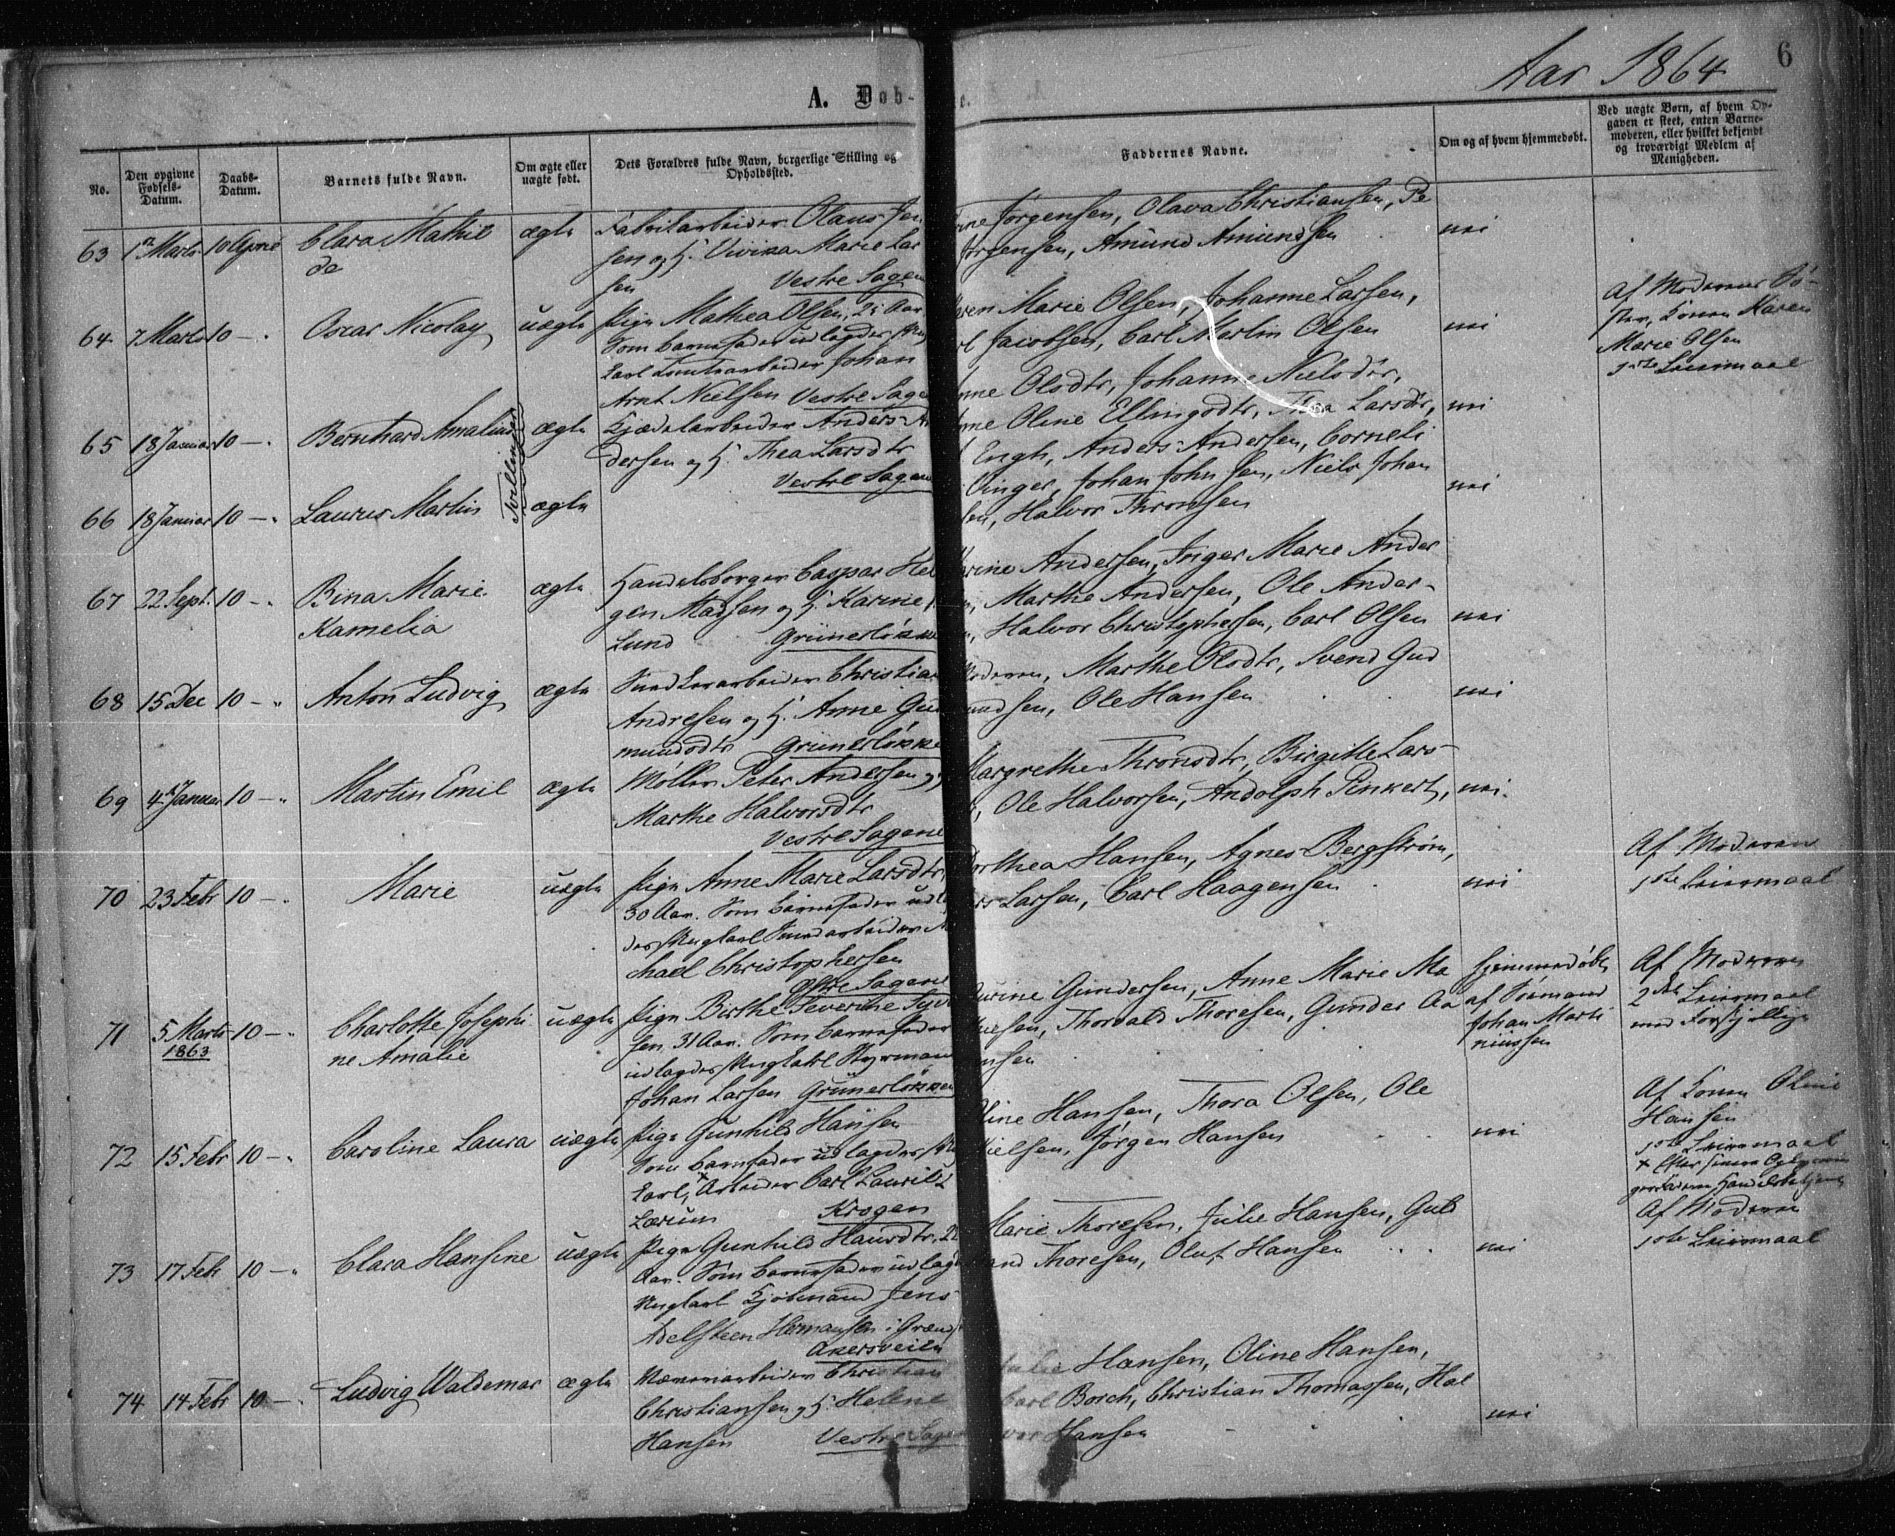 Aar 1864
6
A. Døb-
No.
Den opgivne Fødsels-Datum.
Daabs-Datum.
Barnets fulde Navn.
Om ægte eller uægte født.
Dets Forældres fulde Navn, borgerlige Stilling og Opholdssted.
Faddernes Navne.
Om og af hvem hjemmedøbt.
Ved uægte Børn, af hvem Op-
gaven er skeet, enten Barne-
moderen, eller hvilket bekjendt
og troværdigt Medlem af
Menigheden.
63 Marts 10 April Clara Mathil
de
ægte
Fabrikarbeider Olaus Jen
sen og H. Vivika Marie Lar
sen Vestre Sagen
Jørgensen, Olava Christiansen, Pe
Jørgensen, Amund Amundsen
nei
64 7 Marts 10 - Oscar Nicolay
uægte
Pige Mathea Olsen, 25 Aar
Som barnefader udlagdes
Johan
Arnt Nielsen Vestre Sage
Marie Olsen, Johanne Larsen,
Jacobsen, Carl Martin Olsen
nei
Af Moderens Sø-
ster, Konen Karen
Marie Olsen
1ste Leiermaal
65 18 Januar 10 - Bernhard Amalius
Tvillinger
ægte
Anders
dersen og H. Thea Larsdtr
Vestre Sagen
Olsdtr, Johanne Nielsdtr,
Oline Ellingsdtr, Thea Larsdtr,
Engh, Anders Andersen, Corneli
nei
66 18 Januar 10 - Laurus Martin
ægte
Vinger, Johan Johnsen, Niels Johan
sen, Halvor Thronsen
nei
67 22 Sept. 10 - Bina Marie
Kamelia
ægte
Handelsborger Caspar Hel
gen Madsen og H. Karine
Lund Grünerløkke
Andersen, Inger Marie Ander
Marthe Andersen, Ole Ander-
Halvor Christophersen, Carl Olsen
nei
68 15 Dec 10 - Anton Ludvig
ægte
Christian
Andresen og H. Anne Gud
mundsdtr Grünerløkke
Moderen, Marthe Olsdtr, Svend Gud
mundsen, Ole Hansen
nei
69 4 Januar 10 - Martin Emil
ægte
Møller Peter Andersen og
Marthe Halvorsdtr
Vestre Sagene
Margrethe Thronsdtr, Birgitte Lars-
Ole Halvorsen, Andolph Pinkert,
nei.
70 23 Febr 10 - Marie
uægte
Pige Anne Marie Larsdtr
30 Aar. Som barnefader udlag
des Ungkarl
chael Christophersen
Østre Sagene
Dorthea Hansen, Agnes Bergstrøm,
Larsen, Carl Haagensen
nei
Af Moderen
1ste Leiermaal
71 5 Marts 10 -
1863
Charlotte Josephi
ne Amalie
uægte
Pige Birthe Severine Syv
sen 31 Aar. Som barnefader
udlagdes Ungkarl Styrmand
Johan Larsen Grünerløkken
Gundersen, Anne Marie Ma
Thorvald Thoresen, Gunder Aa
sen
hjemmedøbt
af Sømand
Johan Marti
niussen
Af Moderen
2det Leiermaal
med Forskjellige
72 15 Febr 10 - Caroline Laura
uægte
Pige Gunhild Hansen
Som barnefader udlagdes
karl, Arbeider Carl Lauritz
Lærum Krogen
Oline Hansen, Thora Olsen, Ole
Nielsen, Jørgen Hansen
nei
Af Konen Oline
Hansen
1ste Leiermaal
73 17 Febr 10 - Clara Hansine
uægte
Pige Gunhild Hansdtr, 22
Aar. Som barnefader udlagd
Ungkarl Kjøbmand Jens
Adelsteen Hermansen i
Akersveien
Marie Thoresen, Julie Hansen, Gul
brand Thoresen, Oluf Hansen
nei
Af Moderen
1ste Leiermaal
74 14 Febr 10 - Ludvig Waldemar
ægte
Christian
Christiansen og H. Helene
Hansen Vestre Sagen
Hansen, Oline Hansen,
Carl Borch, Christian Thomassen, Hal
vor Hansen
nei